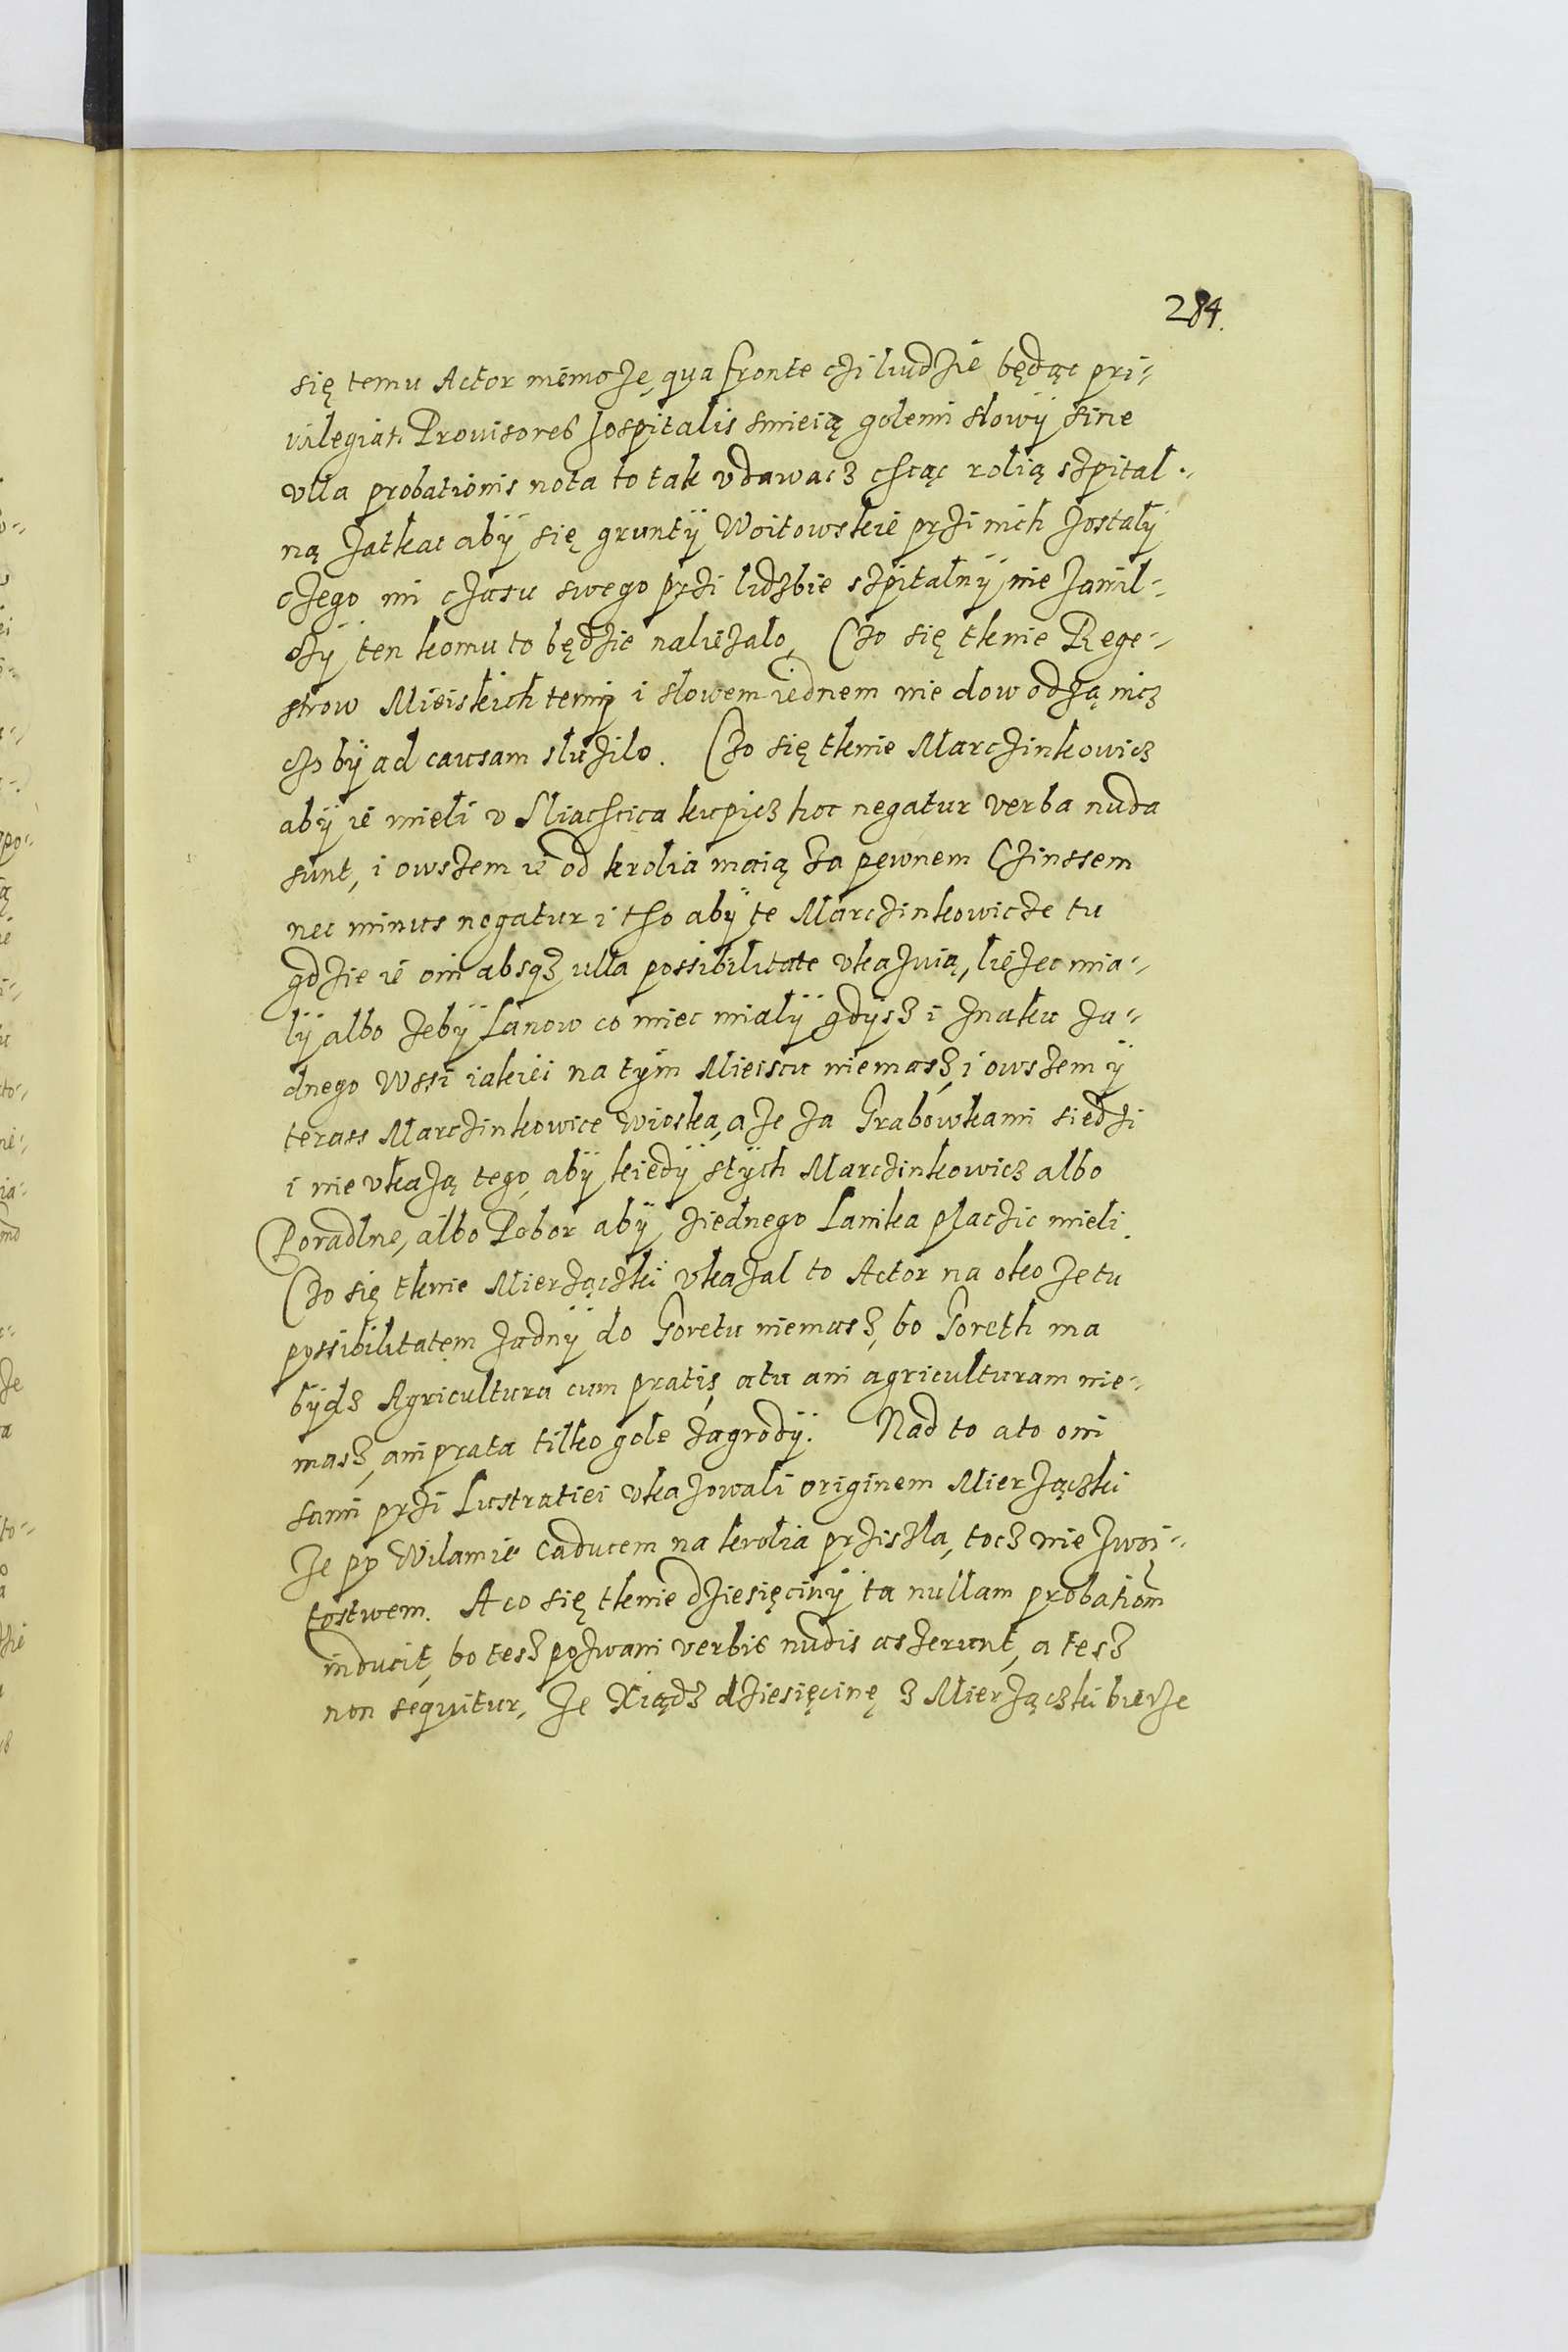 284.
się temu Actor niemoże, qua fronte czi liudzie będąc pri-
uilegiati Prouisores hospitalis smieią golemi słowÿ sine
vlla probationis nota to tak vdawacz chcąc rolią szpital-
ną zatkac abÿ się gruntÿ Woitowskie przi nich zostalÿ
czego mi czasu swego przi lidzbie szpitalnÿ nie zamil-
czÿ ten komu to będzie należalo, Czo się tknie Rege-
strow Mieiskich temi i słowem iednem nie dowodzą nicz
czo bÿ ad causam służilo. Czo się tknie Marczinkowicz
abÿ ie mieli v Sliachcica kupicz hoc negatur verba nuda
sunt, i owszem ie od krolia maią za pewnem Czinssem
nec minus negatur i tho abÿ te Marczinkowicze tu
gdzie ie oni absqz ulla possibilitate vkazuią, liezec mia-
lÿ albo zebÿ Lanow co miec mialÿ gdÿsz i znaku ża-
dnego Wssi iakiei na tÿm Mieiscu niemasz, i owszem ÿ
terass Marczinkowice wioska, aże za Grabowkami siedzi
i nie vkażą tego, abÿ kiedÿ s tÿch Marczinkowicz albo
Poradlne, albo Pobor abÿ ziednego Lanika płaczic mieli.
Czo się tknie Mierzączki vkazal to Actor na oko ze tu
possibilitatem żadnÿ do Goretu niemasz, bo Goreth ma
bÿdz Agricultura cum pratis, atu ani agriculturam nie-
masz, ani prata tilko gole zagrodÿ. Nad to ato oni
sami przi Lustratiei vkazowali originem Mierzączki
że po Wilamie caducem na krolia prziszla, tocz nie zwoi-
tostwem. A co się tknie dziesięcinÿ ta nullam probationem
inducit, bo tesz pozwani verbis nudis asserunt, a tesz
non sequitur, że Xiądz dziesięcinę z Mierzączki bierze